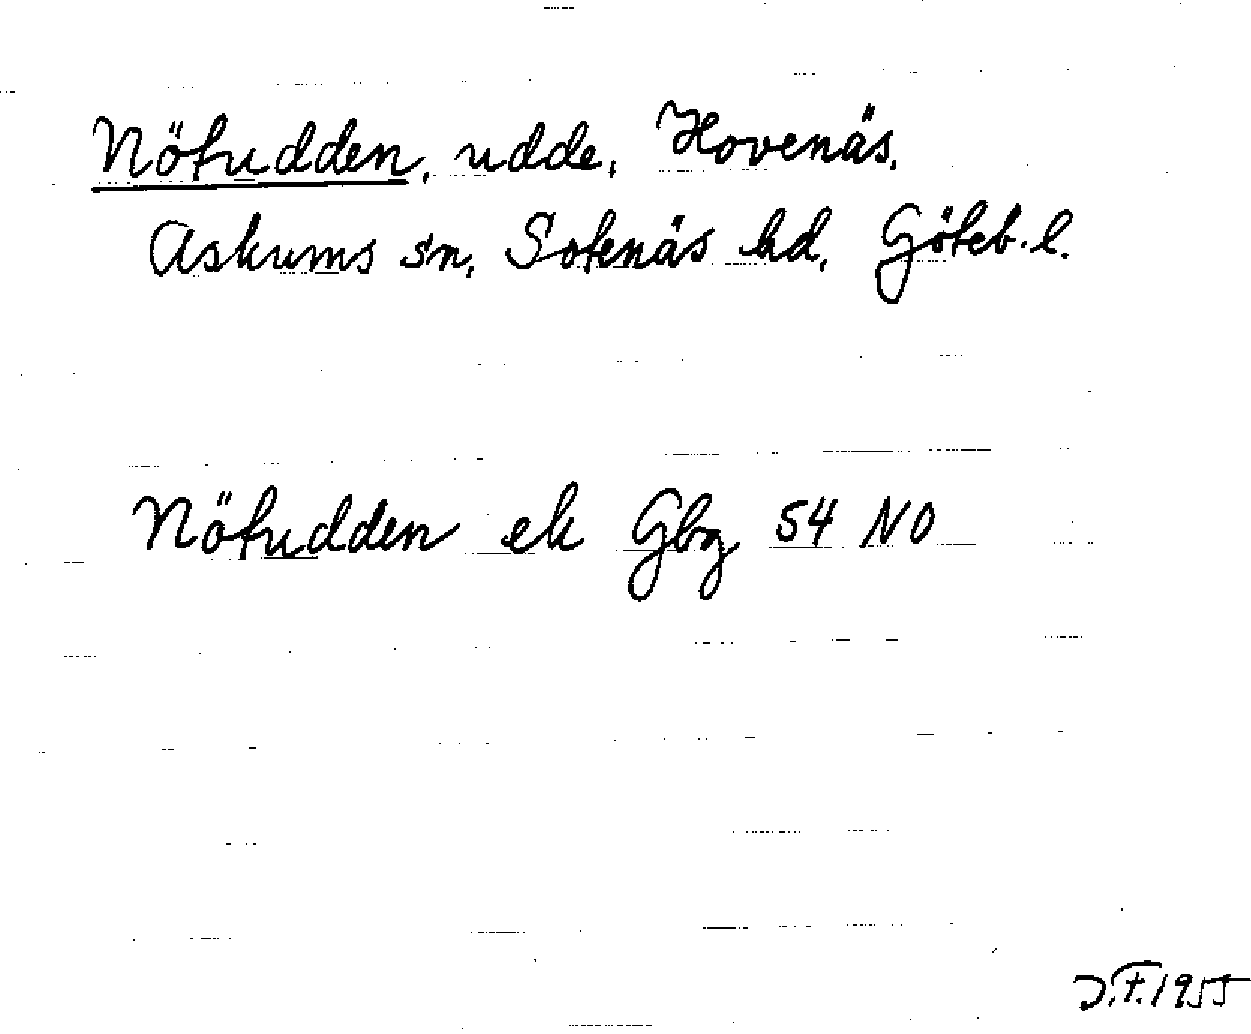 Nötudden, udde, Hovenäs,
Askums sn, Sotenäs hd, Göteb. l.
Nötudden ek Gbg 54 NO
J.F. 1955